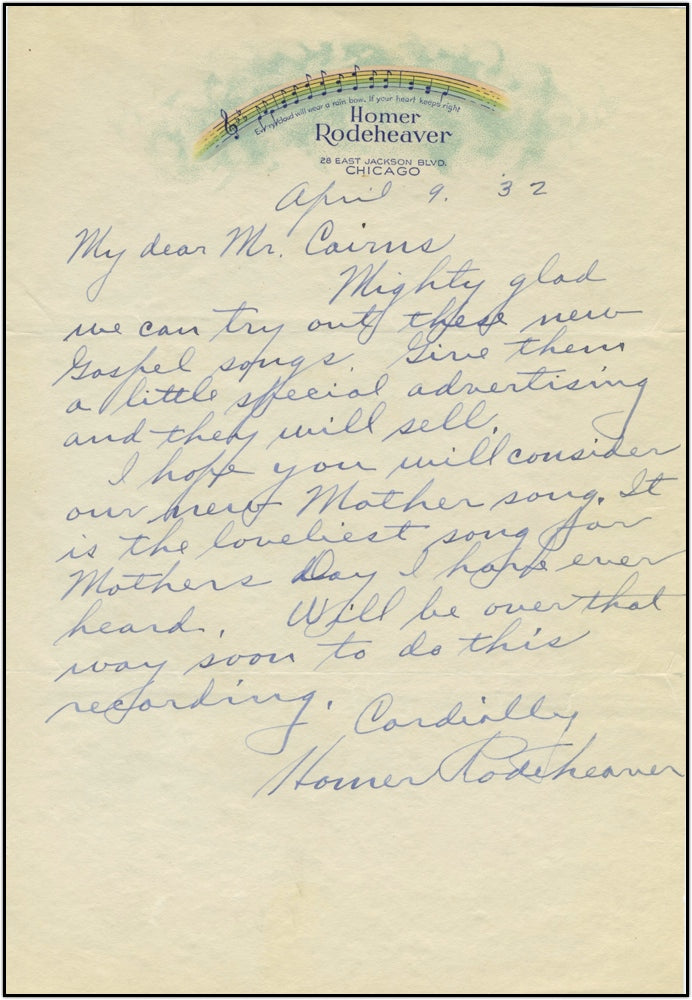 Every cloud will wear a rainbow, If your heart keeps right
Homer
Rodeheaver
28 EAST JACKSON BLVD.
CHICAGO
April 9. 32
My dear Mr. Cairns
Mighty glad
we can try out these new
Gospel songs. Give them
a little special advertising
and they will sell.
I hope you will consider
our new Mother song. It
is the loveliest song for
Mothers Day I have ever
heard. Will be over that
way soon to do this
recording.
Cordially
Homer Rodeheaver